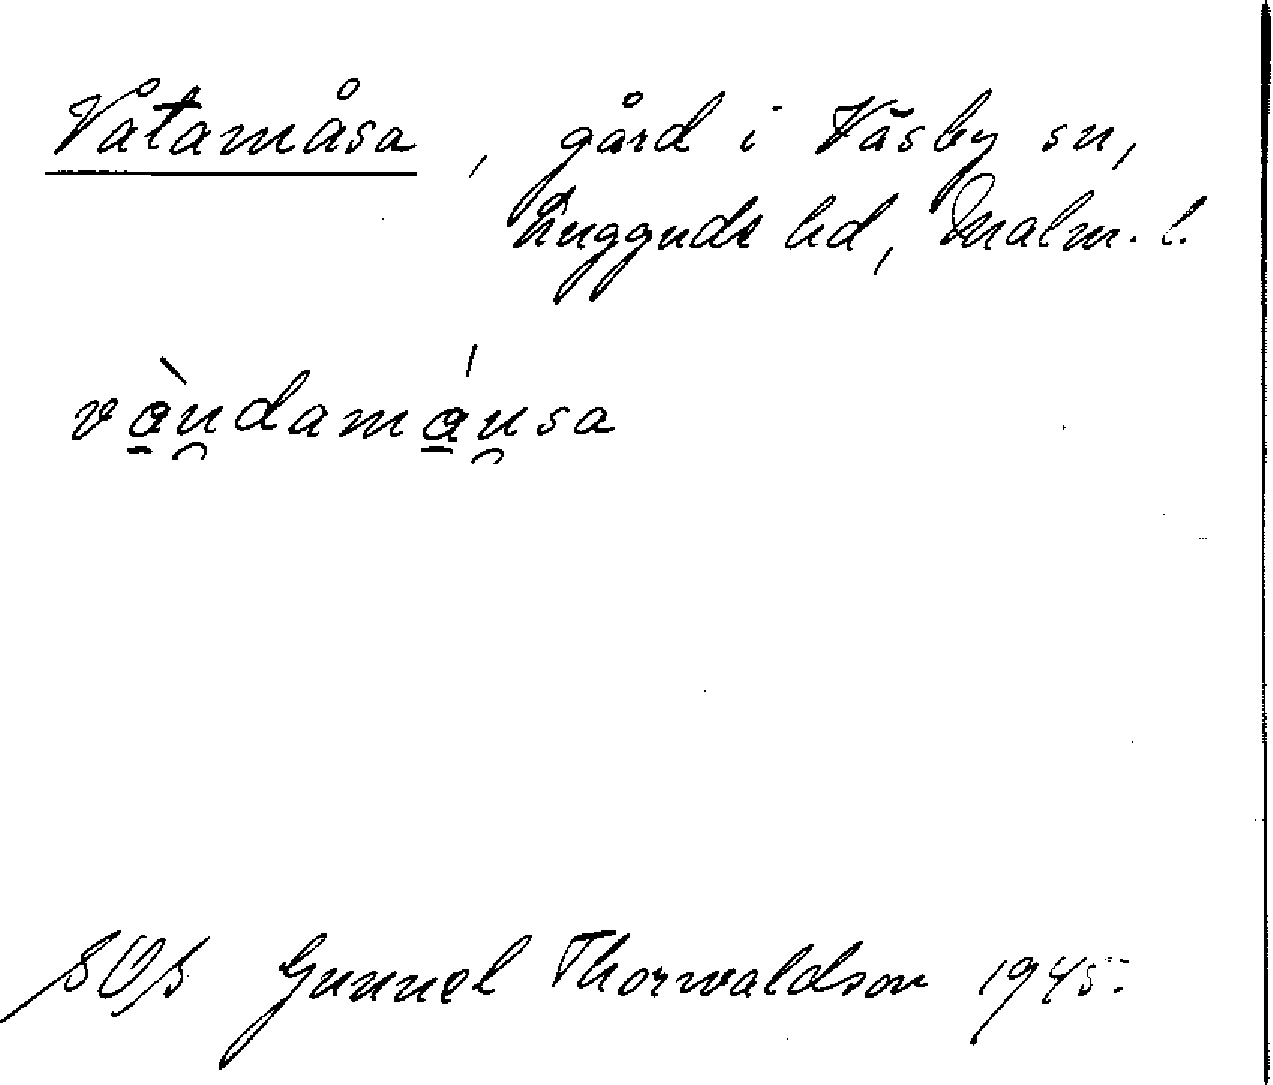 Våtamåsa, gård i Väsby sn,
Luggude hd, Malm. l.
và̱u̯damá̱u̯sa
Gunnel Thorwaldson 1945.